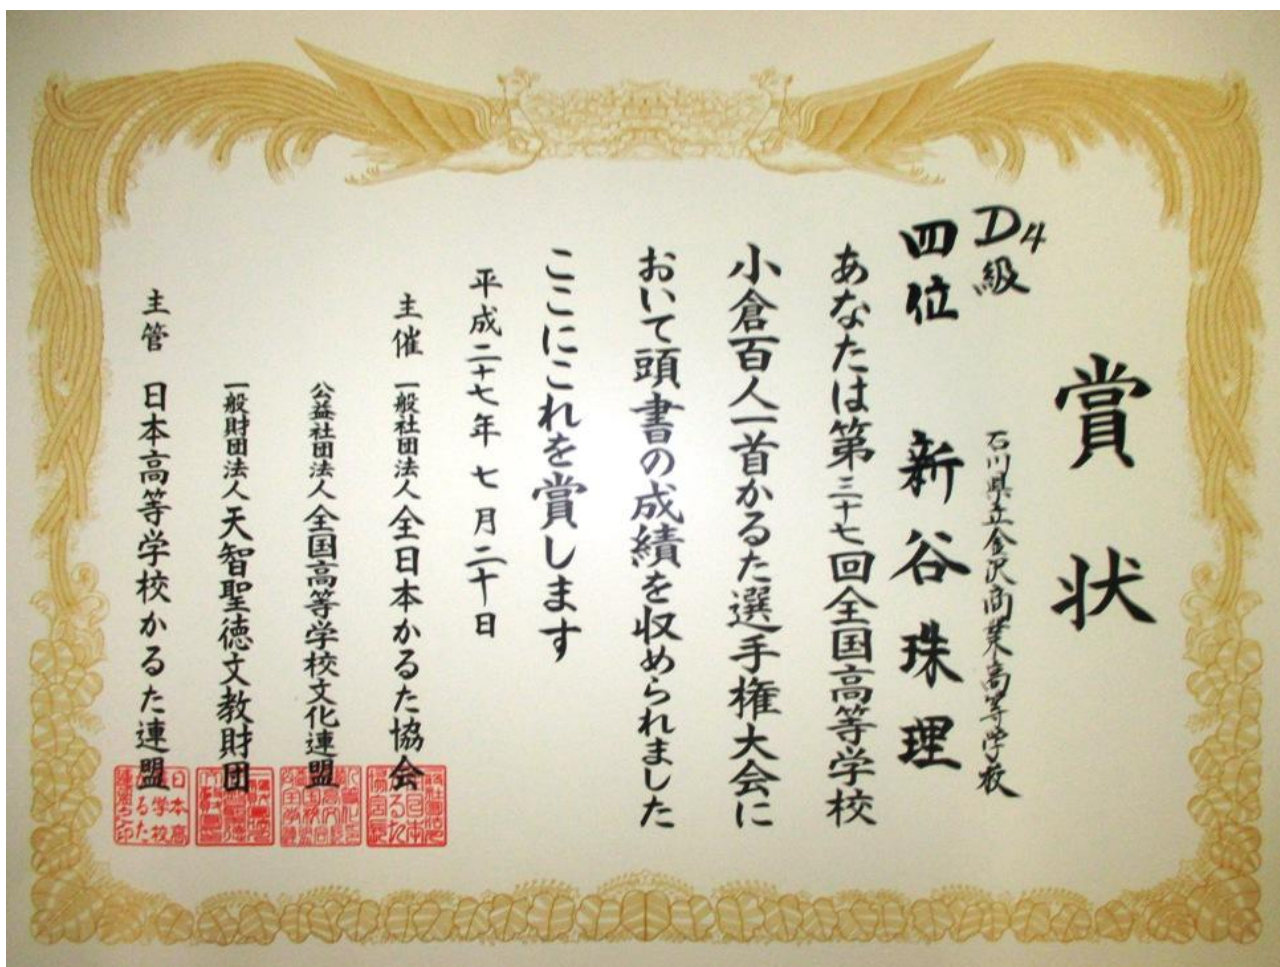 賞状
D4級
石川県立金沢商業高等学校
四位 新谷珠理
あなたは第三十七回全国高等学校
小倉百人一首かるた選手権大会に
おいて頭書の成績を収められました
ここにこれを賞します
平成二十七年七月二十日
主催 一般社団法人全日本かるた協会
公益社団法人全国高等学校文化連盟
一般財団法人天智聖徳文教財団
主管 日本高等学校かるた連盟